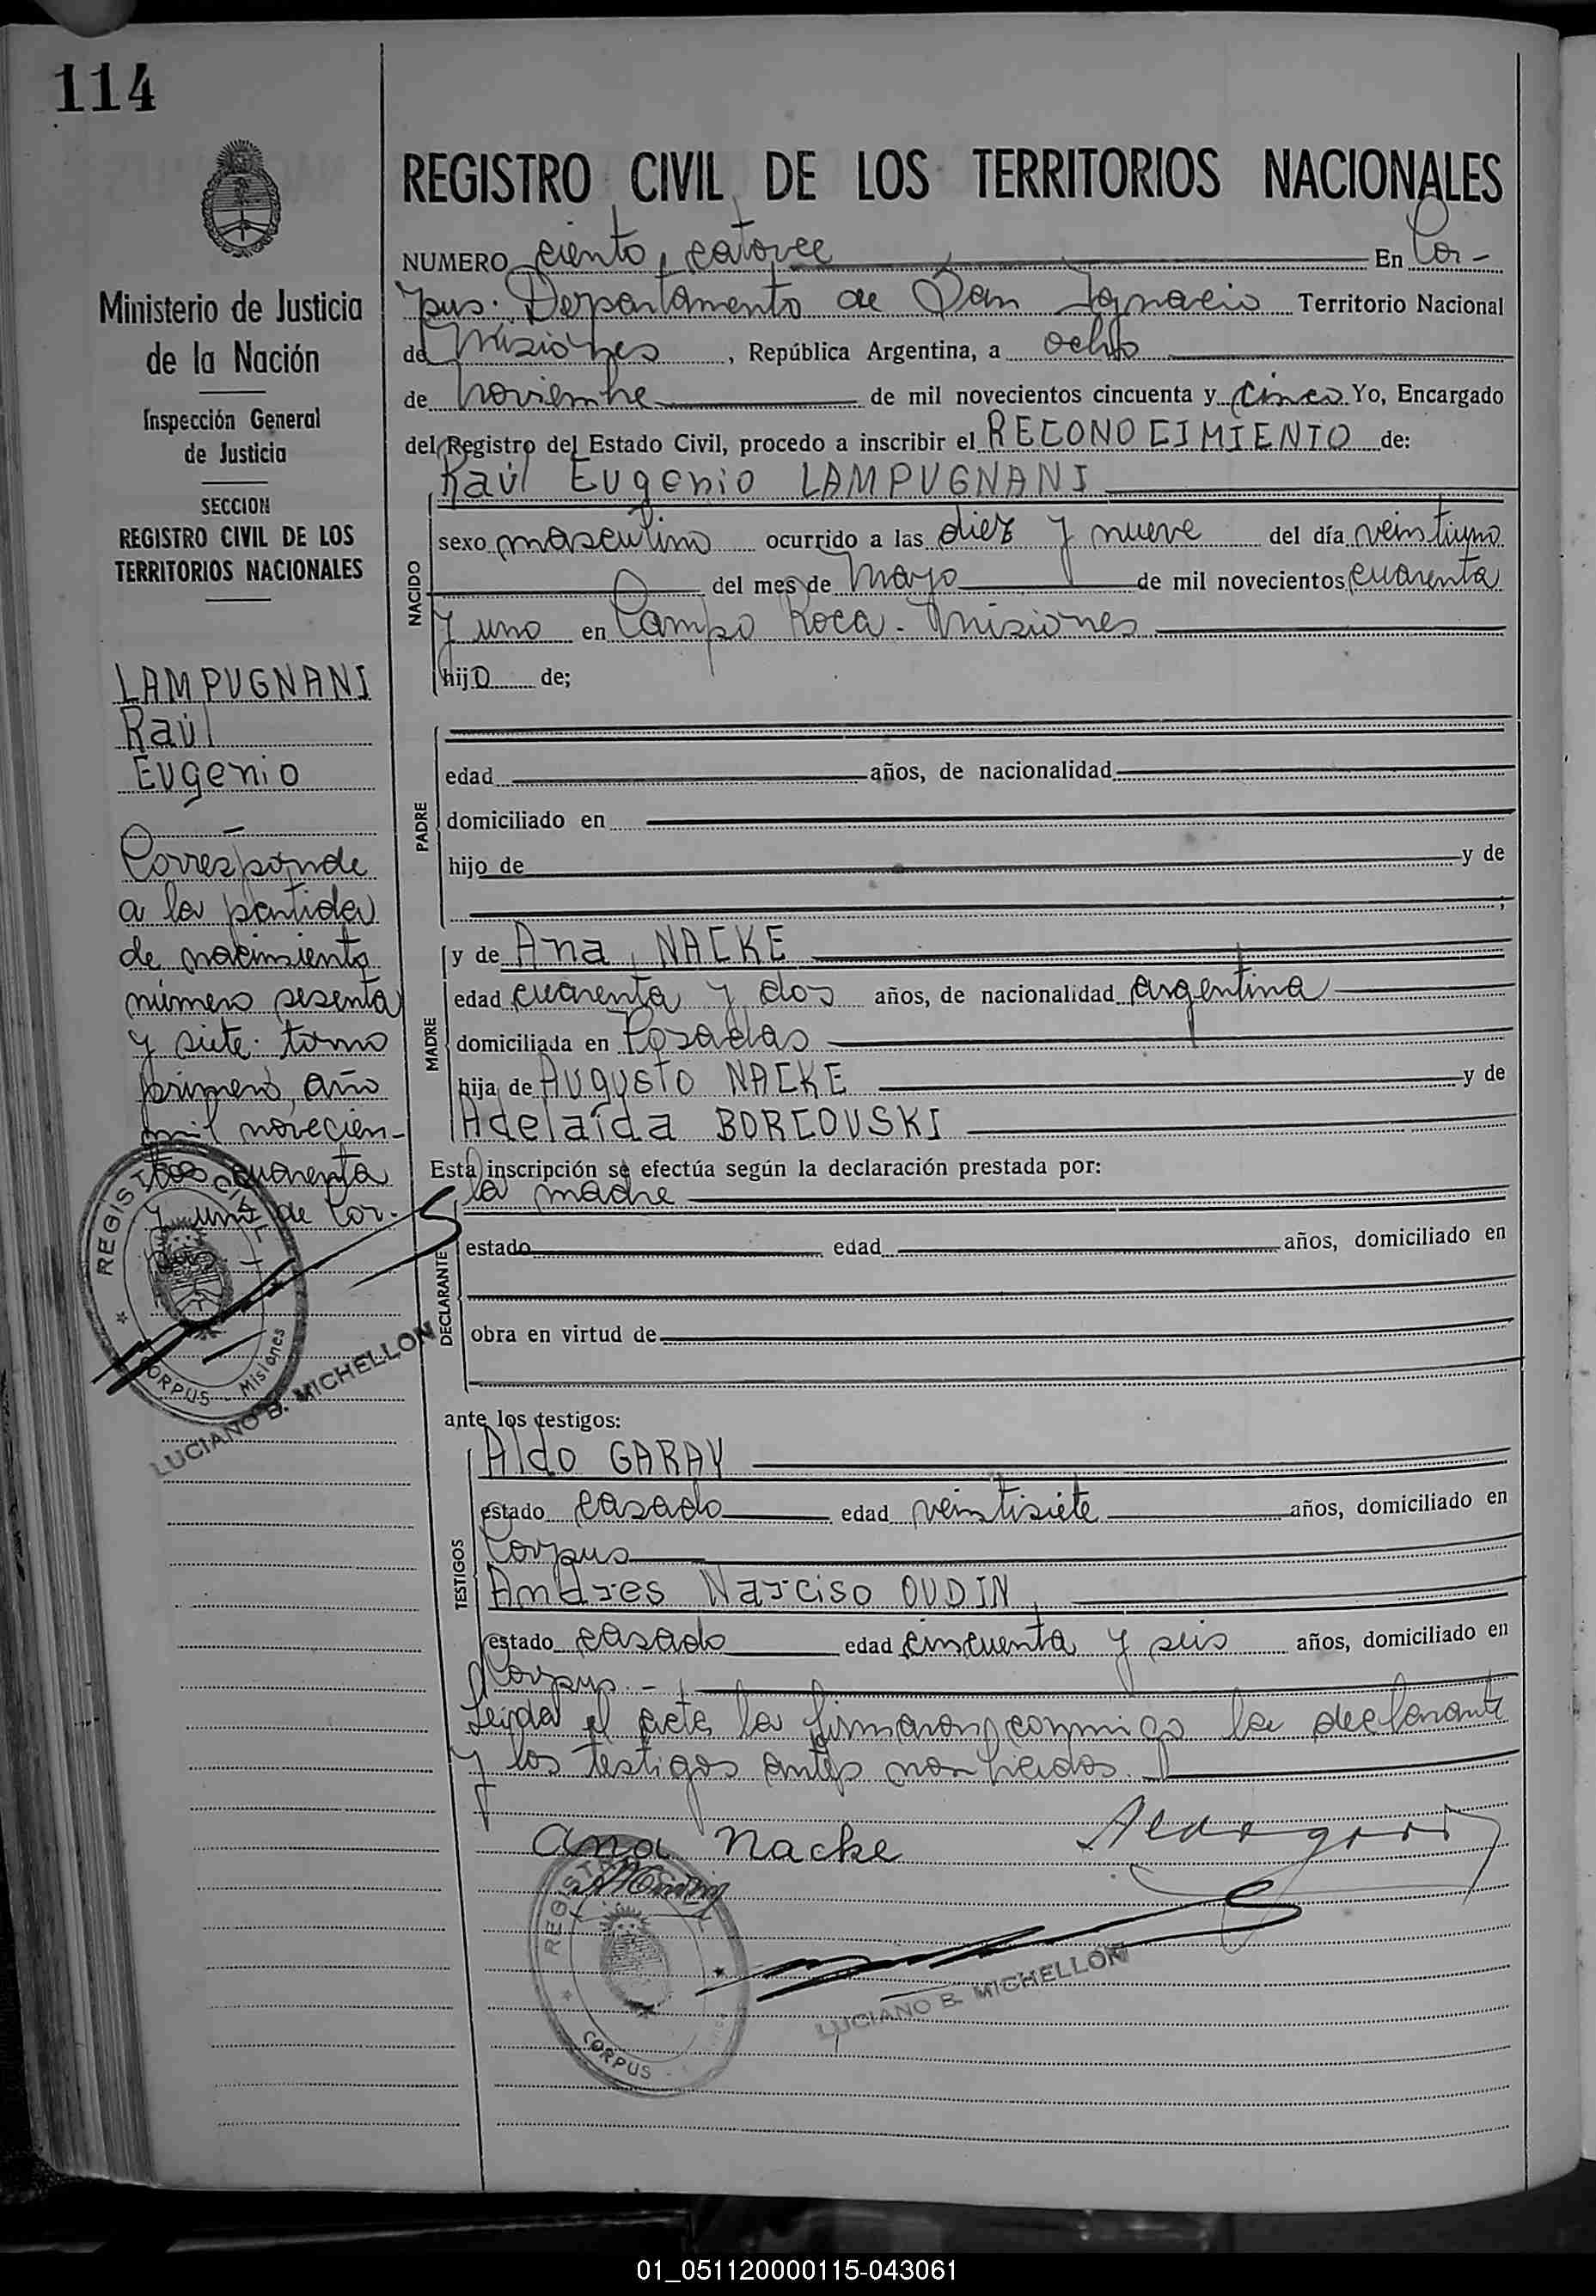 114
REGISTRO CIVIL DE LOS TERRITORIOS NACIONALES
NUMERO ciento catorce En Cor-
pus. Departamento de San Ignacio Territorio Nacional
de Misiones, República Argentina, a ocho
de noviembre de mil novecientos cincuenta y cinco Yo, Encargado
del Registro del Estado Civil, procedo a inscribir el RECONOCIMIENTO de:
Raúl Eugenio LAMPUGNANI
NACIDO
sexo masculino ocurrido a las diez y nueve del día veintiuno
del mes de mayo de mil novecientos cuarenta
y uno en Campo Roca - Misiones
hijo de;
PADRE
edad años, de nacionalidad
domiciliado en
hijo de y de
;
MADRE
y de Ana NACKE
edad cuarenta y dos años, de nacionalidad argentina
domiciliada en Posadas
hija de Augusto NACKE y de
Adelaída BORCOVSKI
Esta inscripción se efectúa según la declaración prestada por:
DECLARANTE
la madre
estado edad años, domiciliado en
obra en virtud de
ante los testigos:
TESTIGOS
Aldo GARAY
estado casado edad veintisiete años, domiciliado en
Corpus
Andres Narciso OUDIN
estado casado edad cincuenta y seis años, domiciliado en
Corpus.-
Leida el acta la firmaron conmigo la declarante
y los testigos antes nombrados.
Ana Nacke
REGISTRO
CORPUS
LUCIANO B. MICHELLON
Ministerio de Justicia
de la Nación
Inspección General
de Justicia
SECCION
REGISTRO CIVIL DE LOS
TERRITORIOS NACIONALES
LAMPUGNANI
Raúl
Eugenio
Corresponde
a la partida
de nacimiento
número sesenta
y siete tomo
primero, año
mil novecien-
tos cuarenta
y uno de Cor-
pus
REGISTRO CIVIL
CORPUS - Misiones
LUCIANO B. MICHELLON
01_051120000115-043061